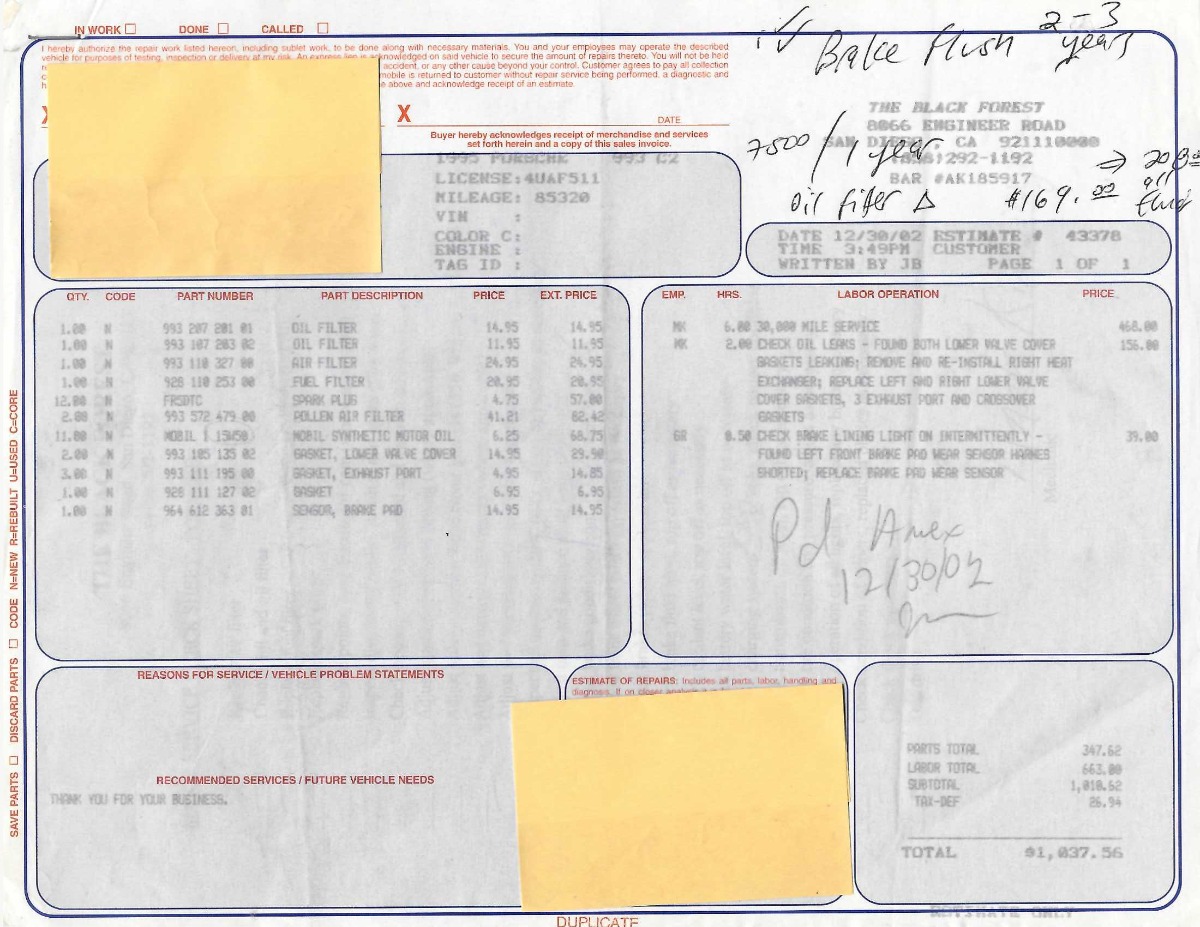 IN WORK DONE CALLED
I hereby authorize the repair work listed hereon, including sublet work, to be done along with necessary materials. You and your employees may operate the described
vehicle for purposes of testing, inspection or delivery at my risk. An express lien is acknowledged on said vehicle to secure the amount of repairs thereto. You will not be held
accident, or any other cause beyond your control. Customer agrees to pay all collection
mobile is returned to customer without repair service being performed, a diagnostic and
above and acknowledge receipt of an estimate.
X DATE
Buyer hereby acknowledges receipt of merchandise and services
set forth herein and a copy of this sales invoice.
Brake flush 2-3 years
THE BLACK FOREST
8066 ENGINEER ROAD
SAN DIEGO, CA 921110000
(858)292-1192
BAR #AK185917
7500 / 1 year
oil filter Δ $169.00
1995 PORSCHE 993 C2
LICENSE:4UAF511
MILEAGE: 85320
VIN :
COLOR C:
ENGINE :
TAG ID :
DATE 12/30/02 ESTIMATE # 43378
TIME 3:49PM CUSTOMER
WRITTEN BY JB PAGE 1 OF 1
QTY. CODE PART NUMBER PART DESCRIPTION PRICE EXT. PRICE
1.00 N 993 207 201 01 OIL FILTER 14.95 14.95
1.00 N 993 107 203 02 OIL FILTER 11.95 11.95
1.00 N 993 110 327 00 AIR FILTER 24.95 24.95
1.00 N 928 110 253 00 FUEL FILTER 20.95 20.95
12.00 N FR5DTC SPARK PLUG 4.75 57.00
2.00 N 993 572 479 00 POLLEN AIR FILTER 41.21 82.42
11.00 N MOBIL 1 15W50 MOBIL SYNTHETIC MOTOR OIL 6.25 68.75
2.00 N 993 105 135 02 GASKET, LOWER VALVE COVER 14.95 29.90
3.00 N 993 111 195 00 GASKET, EXHAUST PORT 4.95 14.85
1.00 N 928 111 127 02 GASKET 6.95 6.95
1.00 N 964 612 363 01 SENSOR, BRAKE PAD 14.95 14.95
EMP. HRS. LABOR OPERATION PRICE
MK 6.00 30,000 MILE SERVICE 468.00
MK 2.00 CHECK OIL LEAKS - FOUND BOTH LOWER VALVE COVER 156.00
GASKETS LEAKING; REMOVE AND RE-INSTALL RIGHT HEAT
EXCHANGER; REPLACE LEFT AND RIGHT LOWER VALVE
COVER GASKETS, 3 EXHAUST PORT AND CROSSOVER
GASKETS
GR 0.50 CHECK BRAKE LINING LIGHT ON INTERMITTENTLY - 39.00
FOUND LEFT FRONT BRAKE PAD WEAR SENSOR HARNES
SHORTED; REPLACE BRAKE PAD WEAR SENSOR
Pd Amex
12/30/02
SAVE PARTS DISCARD PARTS CODE N=NEW R=REBUILT U=USED C=CORE
REASONS FOR SERVICE / VEHICLE PROBLEM STATEMENTS
RECOMMENDED SERVICES / FUTURE VEHICLE NEEDS
THANK YOU FOR YOUR BUSINESS.
ESTIMATE OF REPAIRS: Includes all parts, labor, handling and
diagnosis. If on closer
PARTS TOTAL 347.62
LABOR TOTAL 663.00
SUBTOTAL 1,010.62
TAX-DEF 26.94
TOTAL $1,037.56
DUPLICATE